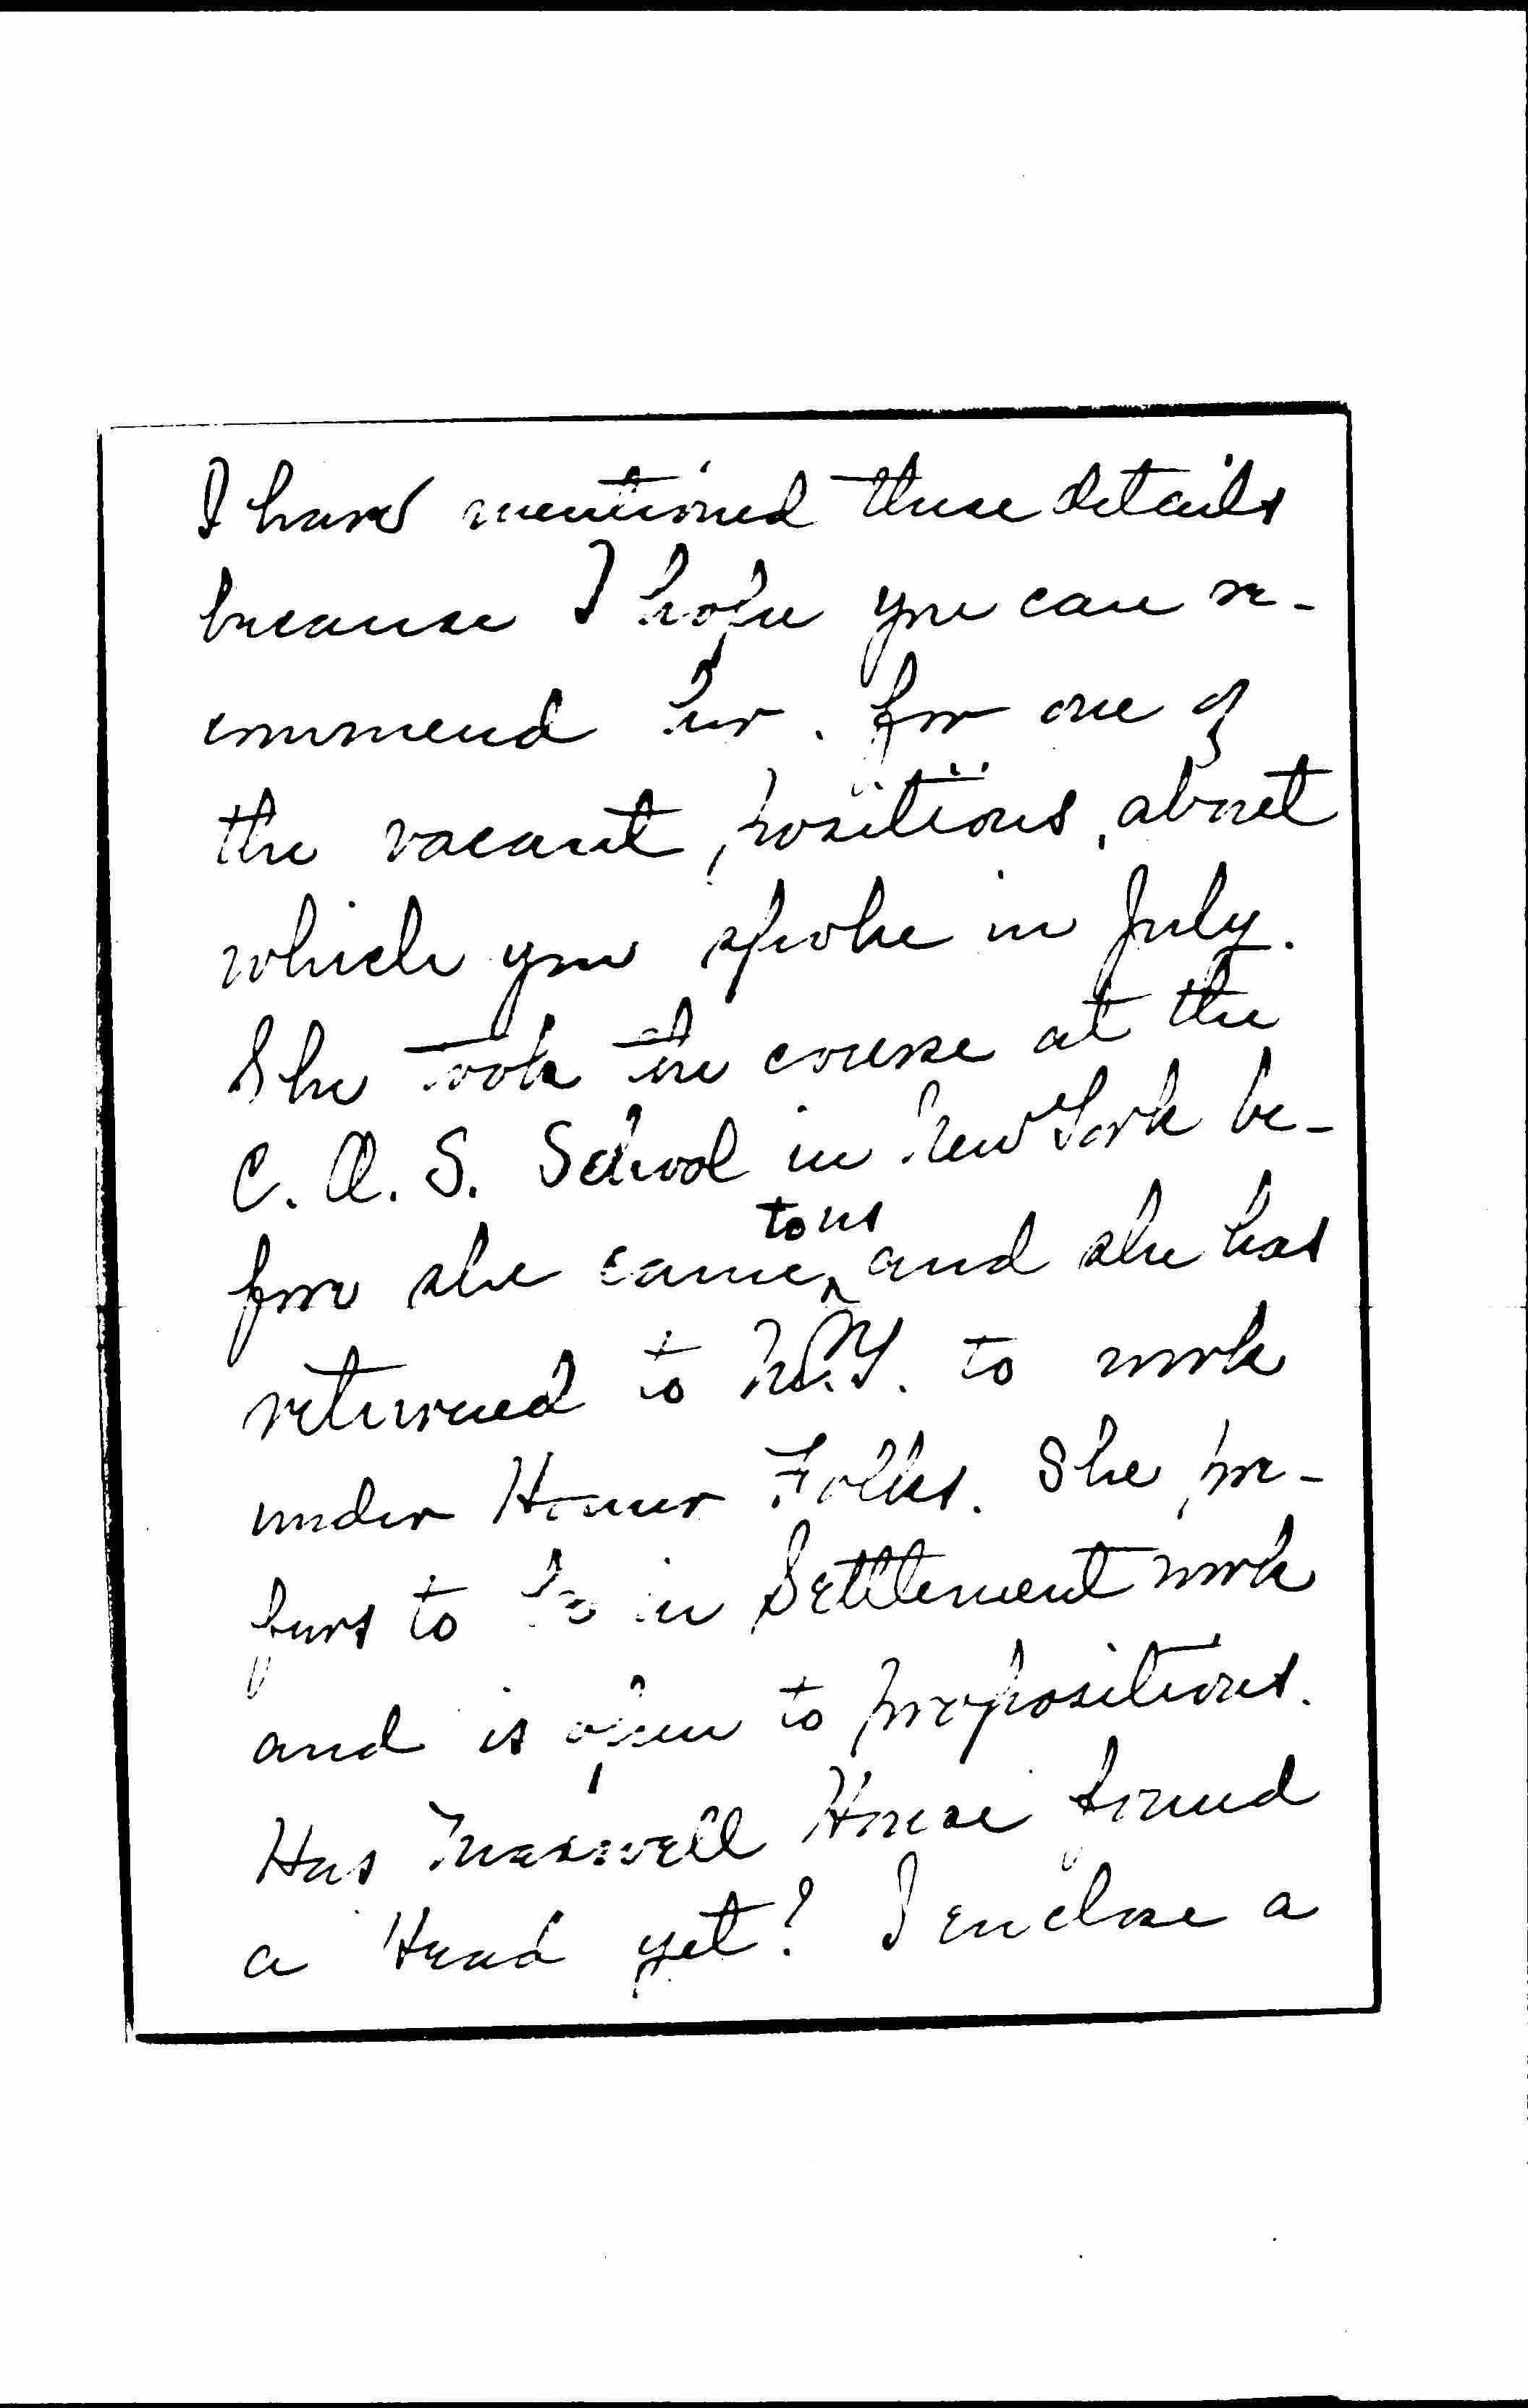 I have mentioned these details
because I hope you can re-
commend her for one of
the vacant positions, about
which you spoke in July.
She took the course at the
C. O. S. School in New York be-
fore she came to us and she has
returned to N.Y. to work
under Homer Folks. She pre-
fers to be in Settlement work
and is open to propositions.
Has Maxwell House found
a Head yet? I enclose a